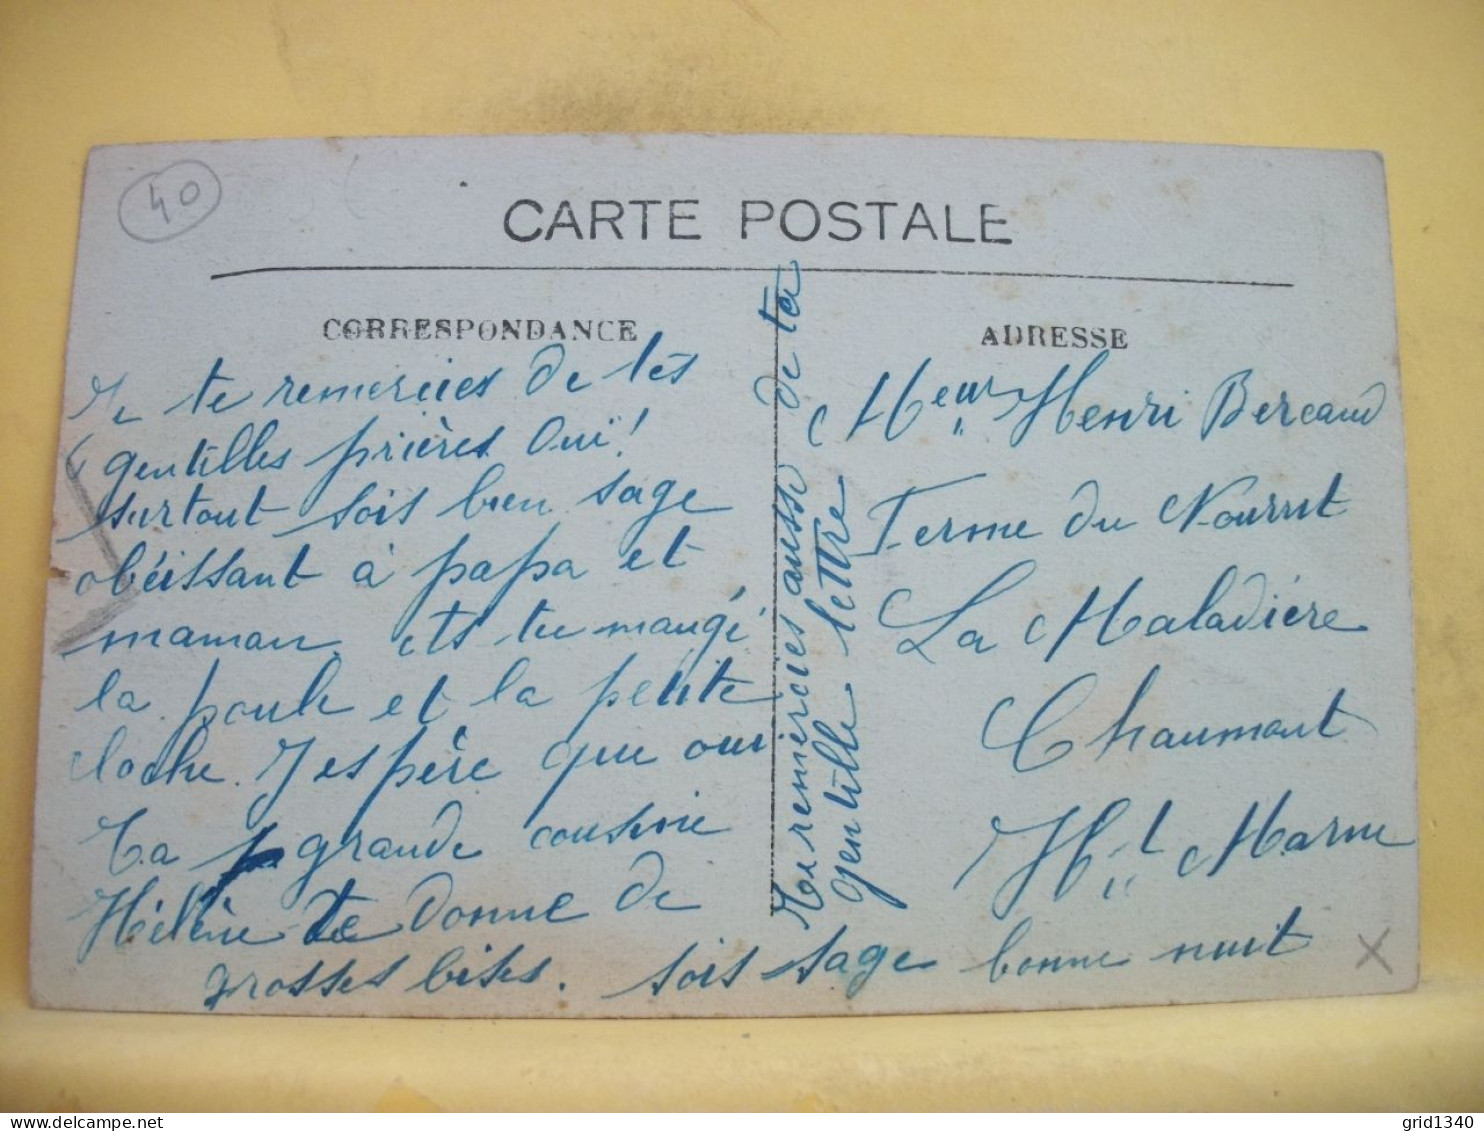 40
CARTE POSTALE
CORRESPONDANCE
Je te remercies de tes
gentilles prières Oui!
surtout sois bien sage
obéissant à papa et
maman. ets tu mangé
la poule et la petite
cloche. J espère que oui
Ta grande cousine
Hélène te donne de
grosses bises. sois sage bonne nuit
remercies aussi de ta
gentille lettre
ADRESSE
Meur Henri Bercaud
Ferme du
La Maladière
Chaumont
Hte Marne
X
grid1340